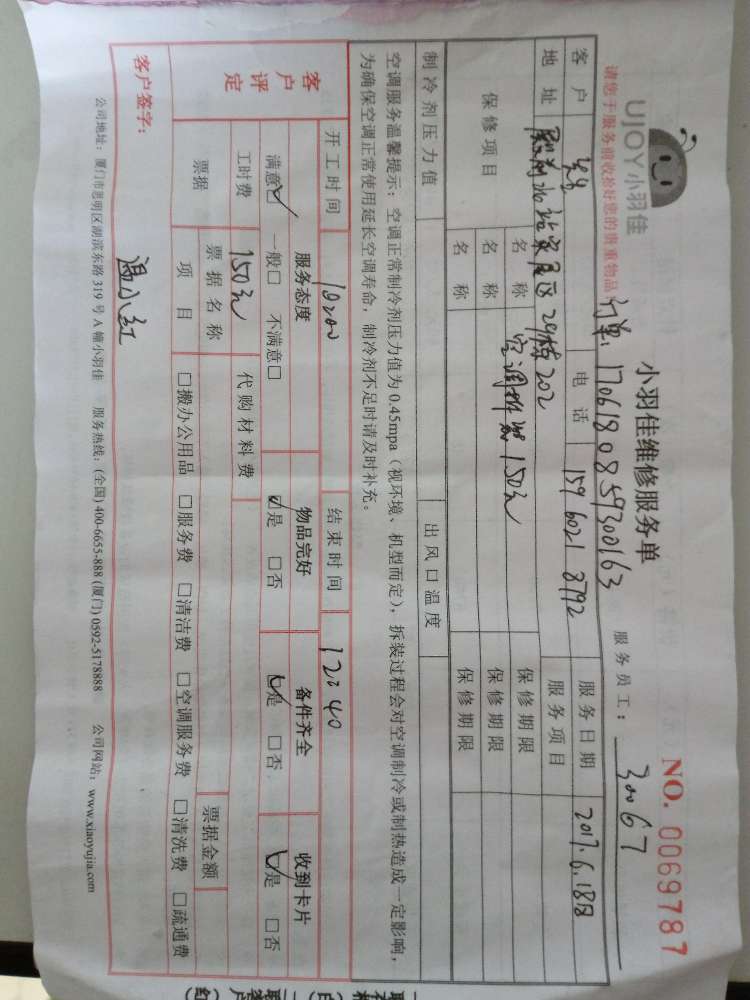 UJOY小羽佳
小羽佳维修服务单
NO. 0069787
请您于服务前收拾好您的贵重物品
订单: 170618085930163
服务员工: 30067
客户
电话 159 6021 8792
服务日期 2017.6.18日
地址 29栋202
服务项目
保修项目
名称 空调拆装150元 保修期限
名称 保修期限
名称 保修期限
制冷剂压力值 出风口温度
空调服务温馨提示:空调正常制冷剂压力值为0.45mpa(视环境、机型而定),拆装过程会对空调制冷或制热造成一定影响,
为确保空调正常使用延长空调寿命,制冷剂不足时请及时补充。
开工时间 10:00 结束时间 12:40
客户评定
服务态度 物品完好 备件齐全 收到卡片
满意☑ 一般□ 不满意□ ☑是 □否 ☑是 □否 ☑是 □否
工时费 150元 代购材料费
票据 票据名称 票据金额
项目 □搬办公用品 □服务费 □清洁费 □空调服务费 □清洗费 □疏通费
客户签字: 温小红
公司地址:厦门市思明区湖滨东路319号A幢小羽佳 服务热线:(全国)400-6655-888 (厦门) 0592-5178888 公司网站:www.xiaoyujia.com